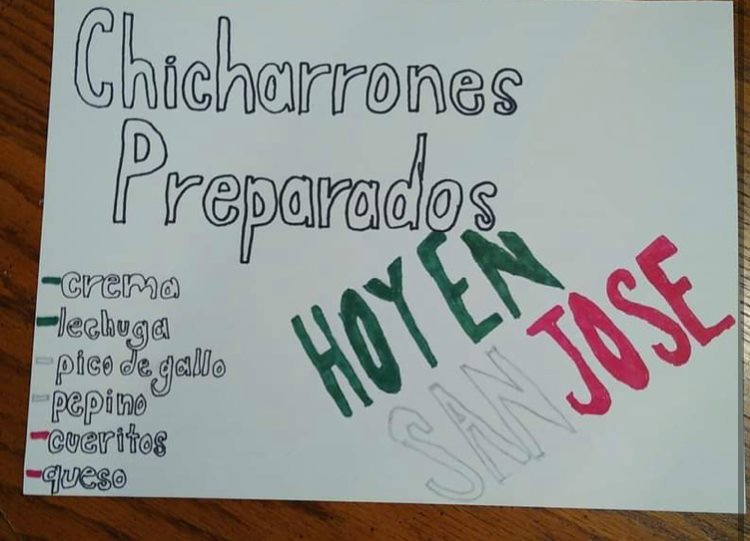 Chicharrones
Preparados
-crema
-lechuga
-pico de gallo
-pepino
-cueritos
-queso
HOY EN
SAN JOSE